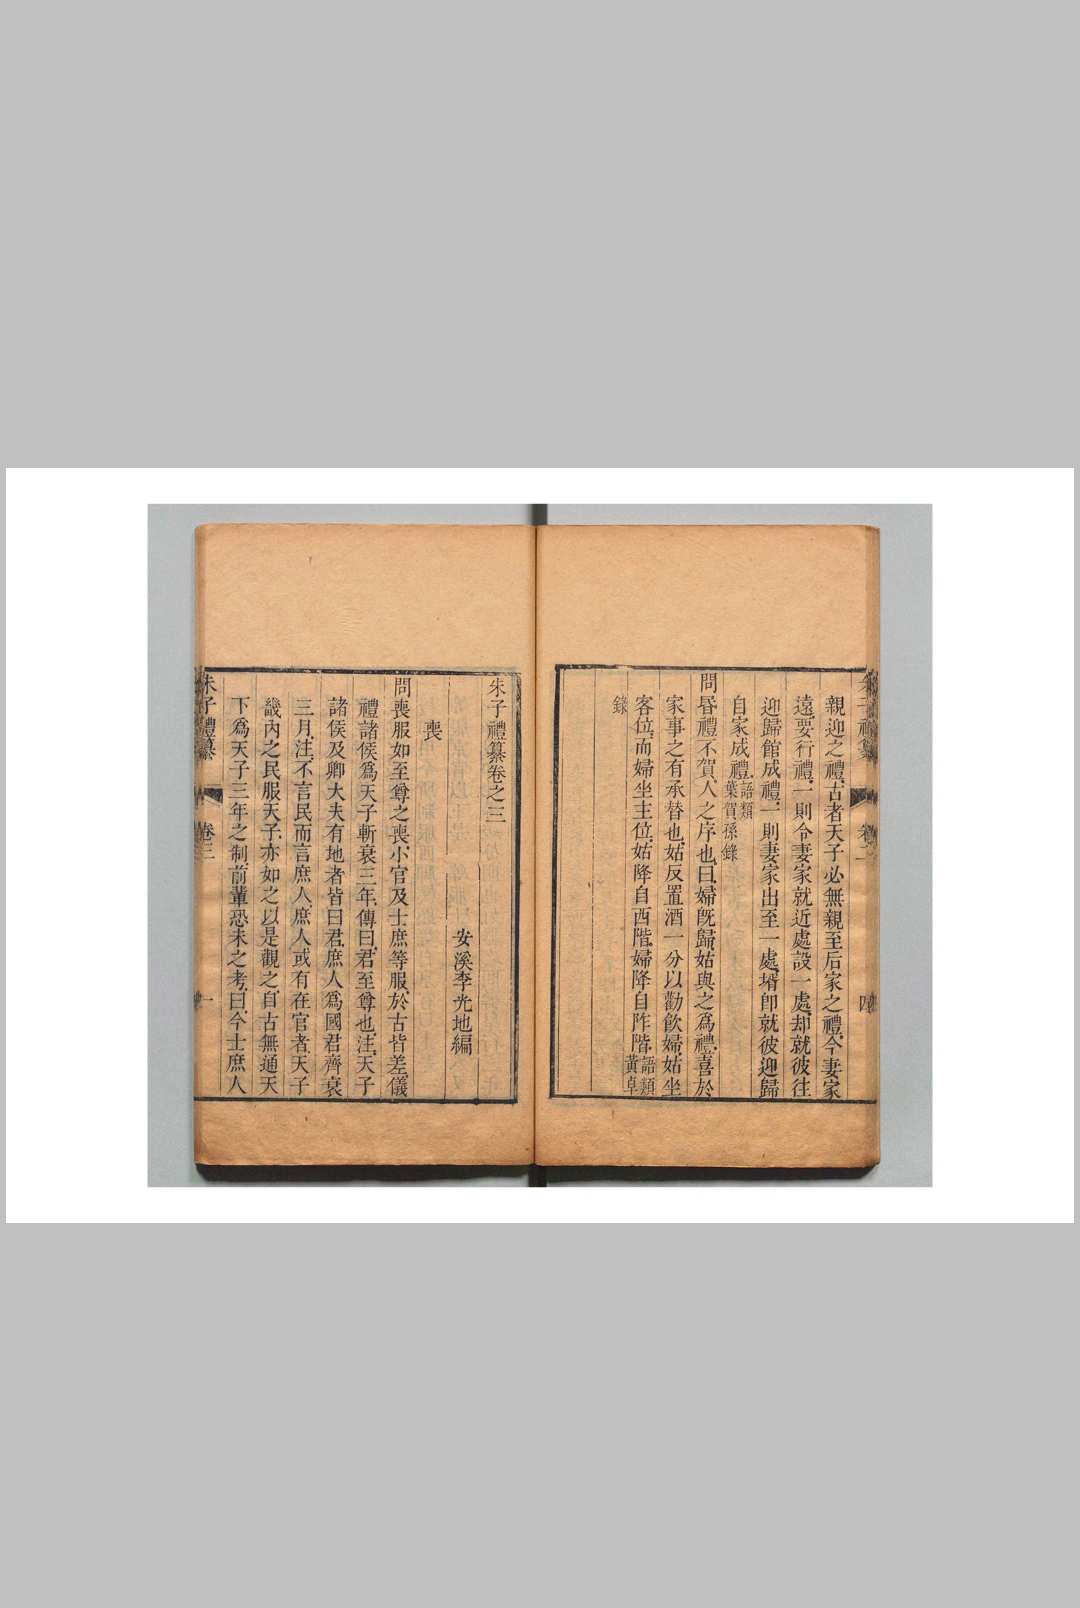 親迎之禮古者天子必無親至后家之禮今妻家
遠要行禮一則令妻家就近處設一處却就彼往
迎歸館成禮一則妻家出至一處壻卽就彼迎歸
自家成禮語類葉賀孫錄
問昏禮不賀人之序也曰婦旣歸姑與之爲禮喜於
家事之有承替也姑反置酒一分以勸飲婦姑坐
客位而婦坐主位姑降自西階婦降自阼階語類黃卓
錄
四
朱子禮纂卷之三
安溪李光地編
喪
問喪服如至尊之喪小官及士庶等服於古皆差儀
禮諸侯爲天子斬衰三年傳曰君至尊也注天子
諸侯及卿大夫有地者皆曰君庶人爲國君齊衰
三月注不言民而言庶人庶人或有在官者天子
畿內之民服天子亦如之以是觀之自古無通天
下爲天子三年之制前輩恐未之考曰今士庶人
朱子禮纂
卷三
一